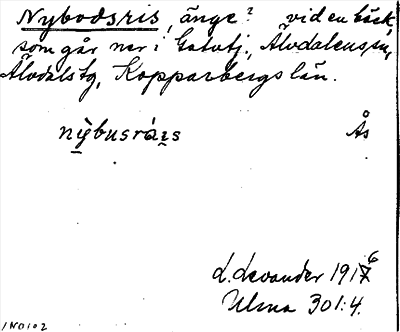 Nybodsris, änge? vid en bäck,
som går ner i Gatutj., Älvdalens sn,
Älvdals tg, Kopparbergs län.
nỳbusrái̯s Ås
L. Levander 1917 6
Ulma 301:4.